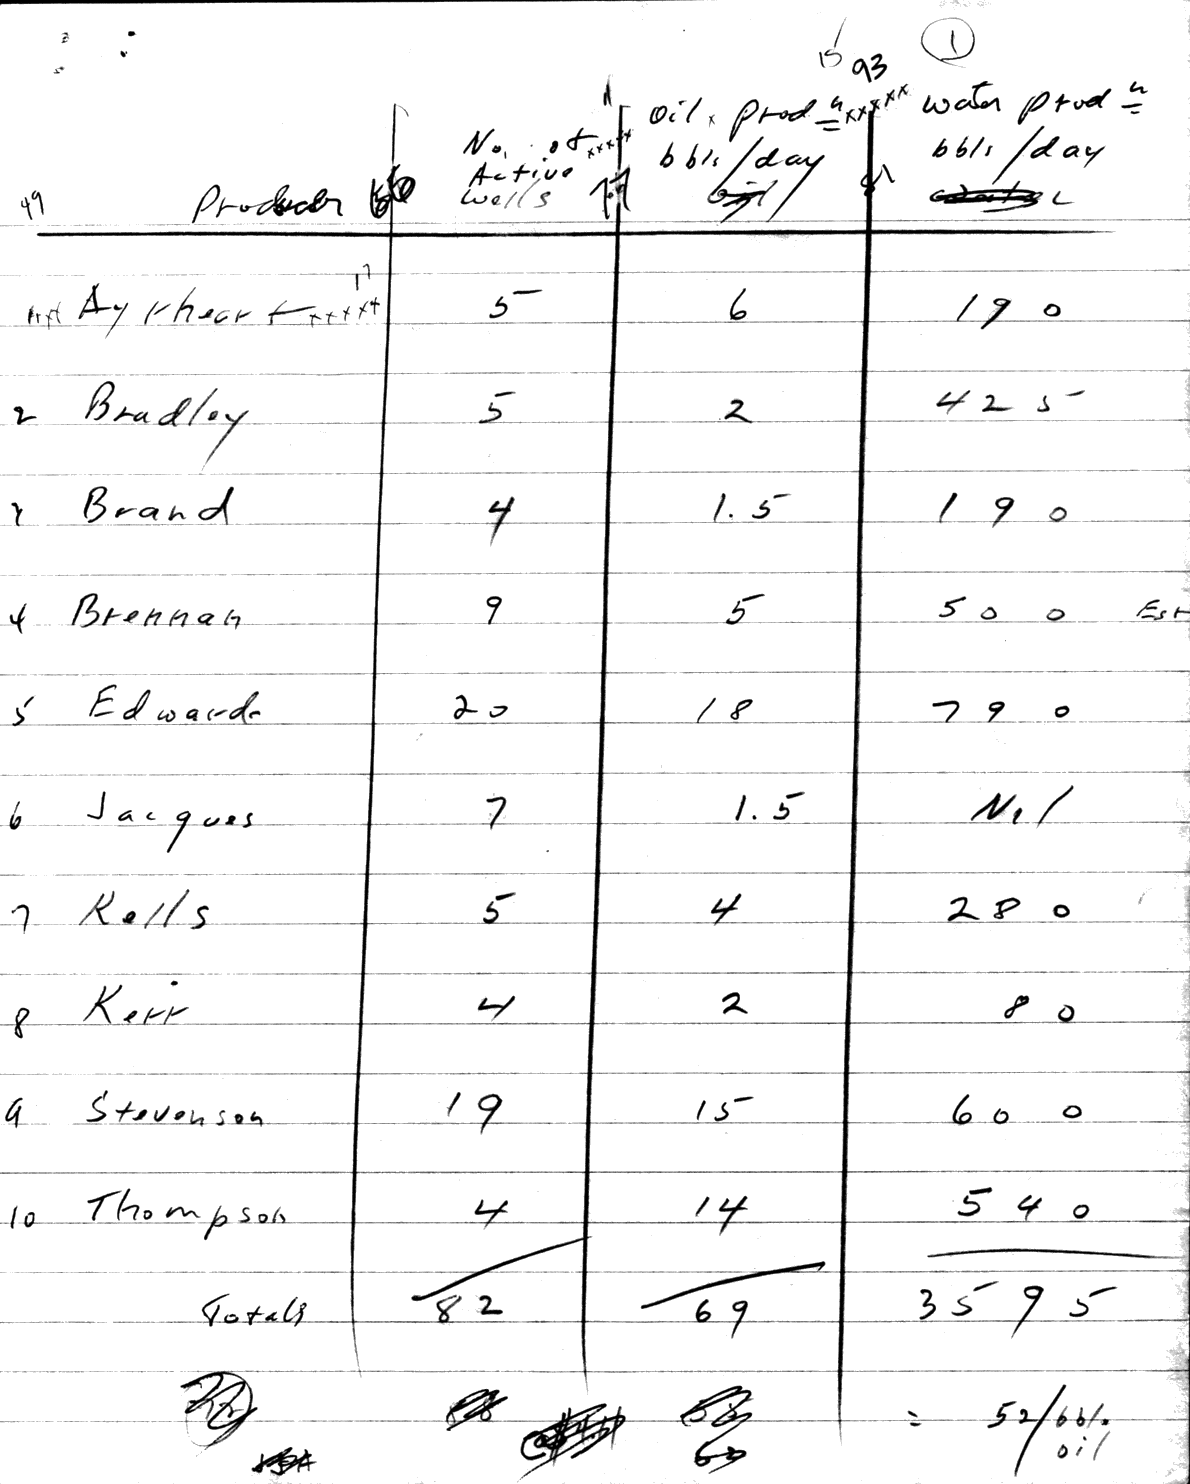 1
15 93
No. of Oil prod n water prod n
Active bbls/day bbls/day
49 Producer Wells
Ayrheart 17 5 6 190
2 Bradley 5 2 425
3 Brand 4 1.5 190
4 Brennan 9 5 500 Est
5 Edwards 20 18 790
6 Jacques 7 1.5 Nil
7 Kells 5 4 280
8 Kerr 4 2 80
9 Stevenson 19 15 600
10 Thompson 4 14 540
Totals 82 69 3595
= 52/bbl.
oil